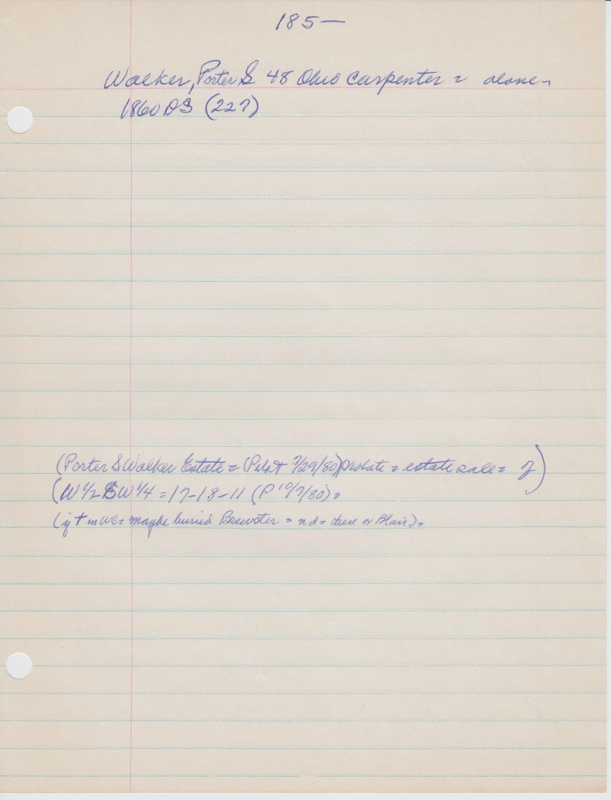 185—
Walker, Porter S 48 Ohio Carpenter = alone -
1860 DS (227)
(Porter S Walker Estate = (Pilot 7/29/80) probate = estate sale =
(W 1/2 SW 1/4 = 17-18-11 (P 10/7/80) =
maybe buried Brewster = nd = here or Blair) =